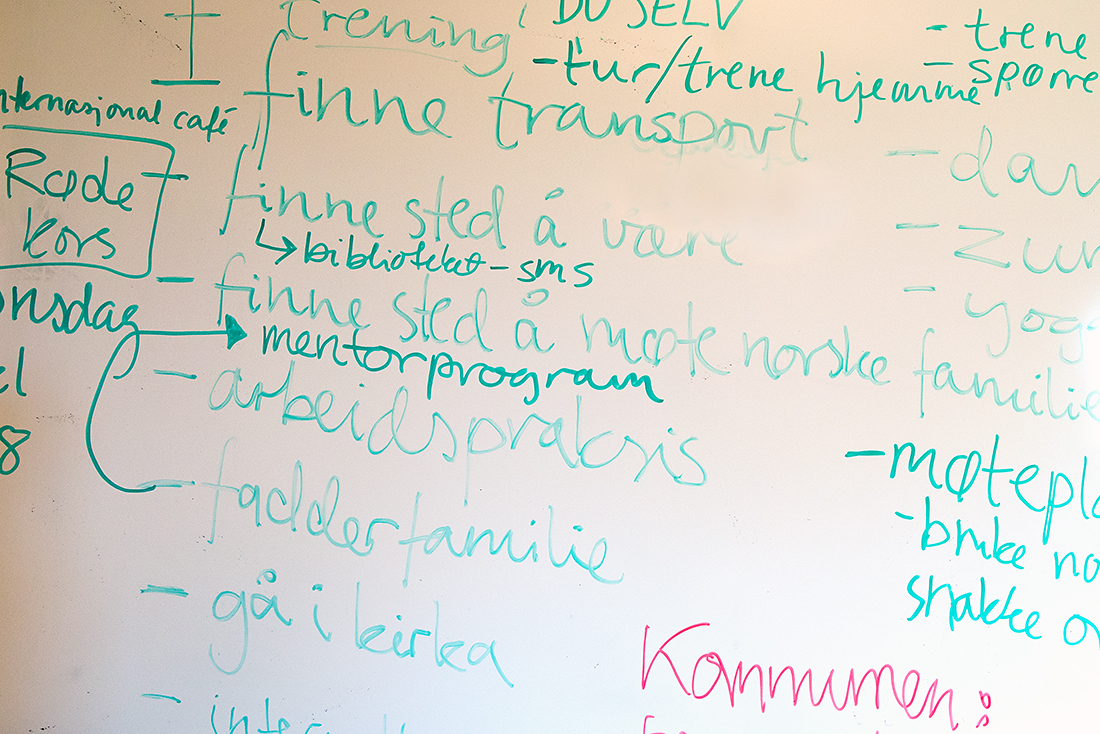 trening
DU SELV
- tur/trene hjemme
- trene
- spørre
finne transport
internasjonal café
Røde
kors
- finne sted å være
↳ biblioteket - sms
- finne sted å møte norske familie
onsdag
mentorprogram
- arbeidspraksis
8
- fadderfamilie
- gå i kirka
- yoga
- bruke no
snakke
Kommunen: